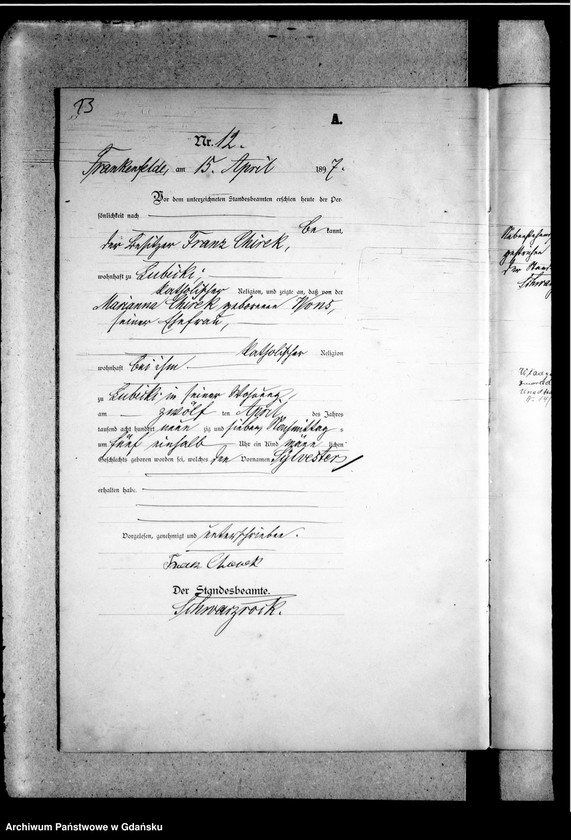 13
A.
Nr. 12.
Frankenfelde, am 15. April 1897.
Vor dem unterzeichneten Standesbeamten erschien heute, der Per-
sönlichkeit nach
be kannt,
der Besitzer Franz Chirek,
wohnhaft zu Lubicki
katholischer Religion, und zeigte an, daß von der
Marianna Chirek geborenen Wons,
seiner Ehefrau,
katholischer Religion
wohnhaft bei ihm
zu Lubicki in seiner Wohnung
am zwölf ten April des Jahres
tausend acht hundert neun zig und sieben Nachmittag s
um fünf einhalb Uhr ein Kind männ lichen
Geschlechts geboren worden sei, welches den Vornamen Sylvester
erhalten habe.
Vorgelesen, genehmigt und unterschrieben.
Franz
Der Standesbeamte.
Schwarzrock.
der
Archiwum Państwowe w Gdańsku